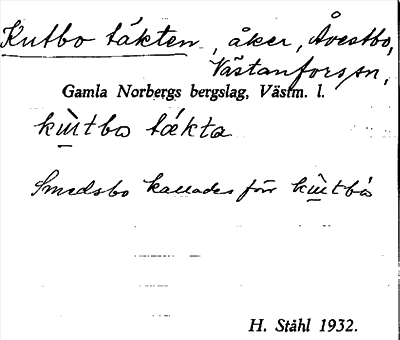 Kutbo täkten, åker, Åvestbo,
Västanfors sn,
Gamla Norbergs bergslag, Västm. l.
kùtbo täkta
Smedsbo kallades för kùtbo
H. Ståhl 1932.